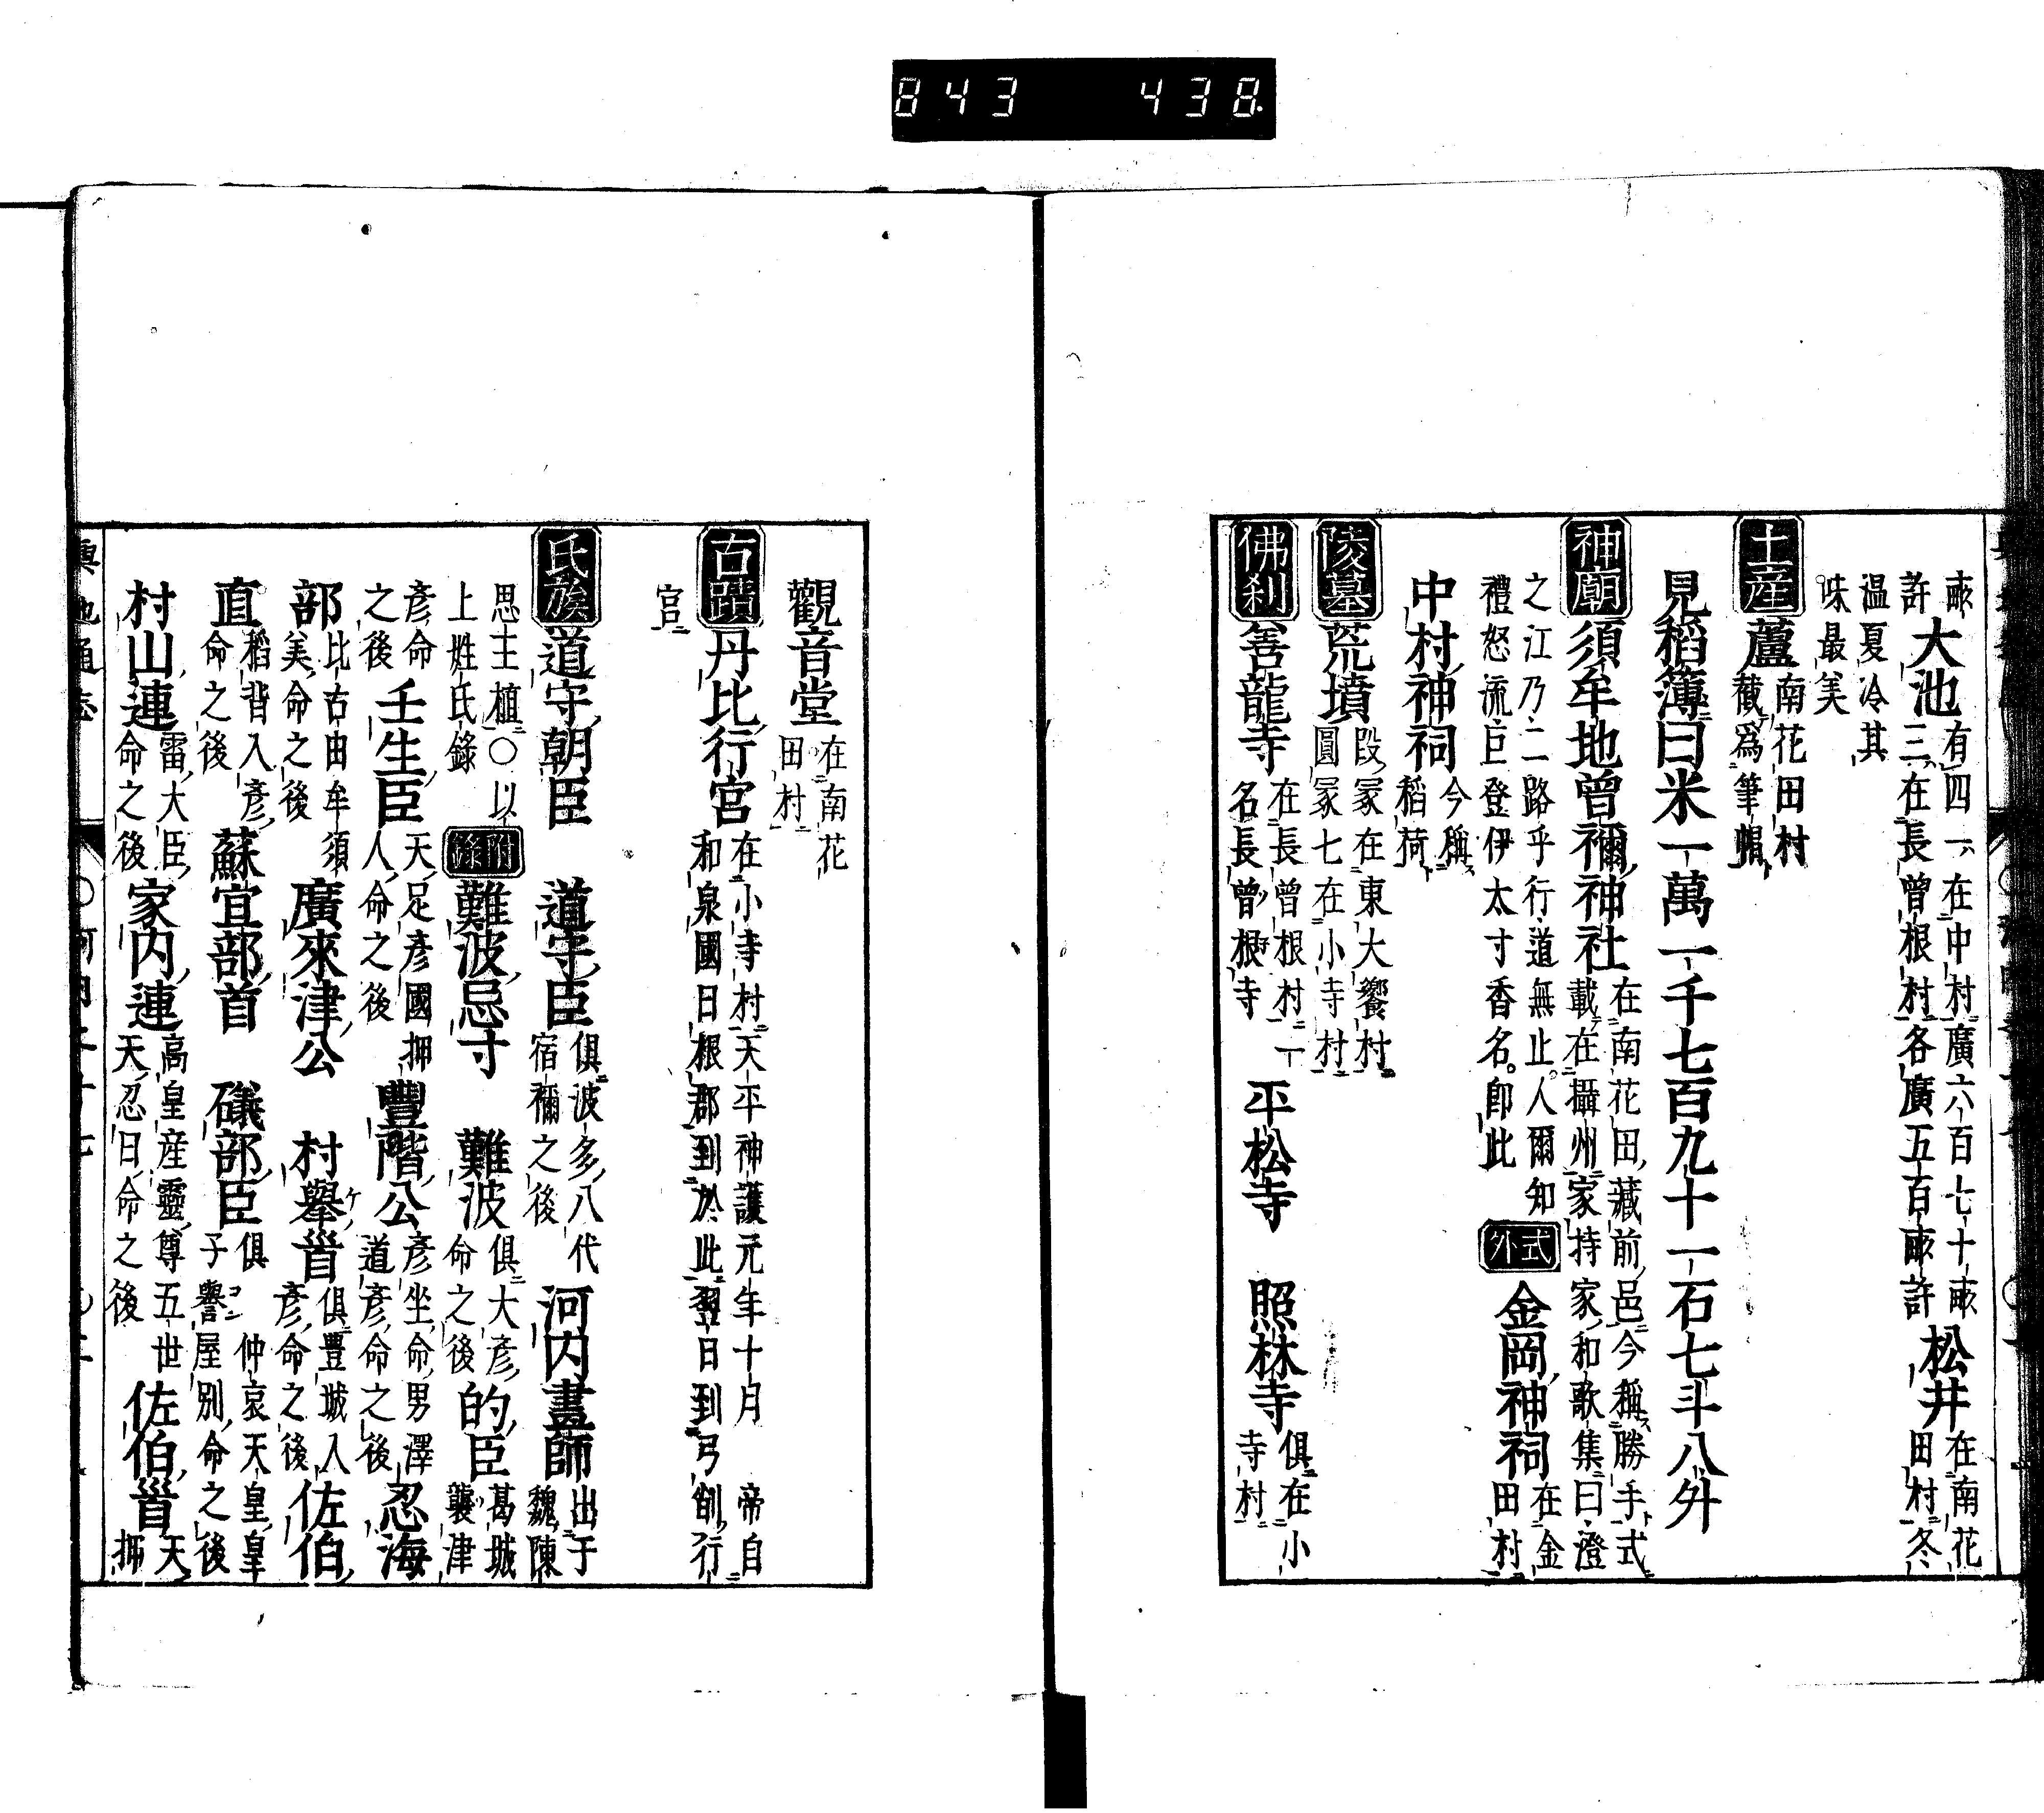 843 438
畝許大池有四一在中村廣六百七十畝三在長曾根村各廣五百畝許松井在南花田村冬
温夏冷其味最美
土産蘆南花田村截爲筆帽
見稻簿曰米一萬一千七百九十一石七斗八升
神廟須牟地曾禰神社在南花田藏前邑今稱勝手式載在攝州家持家和歌集曰澄
之江乃二路乎行道無止人爾知禮怒流巨登伊太寸香名即此式外金岡神祠在金田村
中村神祠今稱稻荷
陵墓荒墳段冢在東大饗村圓冢七在小寺村
佛刹善龍寺在長曾根村一名長曾根寺平松寺照林寺俱在小寺村
觀音堂在南花田村
古蹟丹比行宮在小寺村天平神護元年十月帝自和泉國日根郡到於此翌日到弓削行
宮
氏族道守朝臣道守臣俱波多八代宿禰之後河内畫師出于魏陳
思王植○以上姓氏錄附錄難波忌寸難波俱大彦命之後的臣葛城襲津
彦命之後壬生臣天足彦國押人命之後豐階公彦坐命男澤道彦命之後忍海
部比古由牟須美命之後廣來津公村擧首俱豐城入彦命之後佐伯
直稻背入彦命之後蘇宜部首礒部臣俱仲哀天皇皇子譽屋別命之後
村山連雷大臣命之後家内連高皇産靈尊五世天忍日命之後佐伯首天押
輿地通志